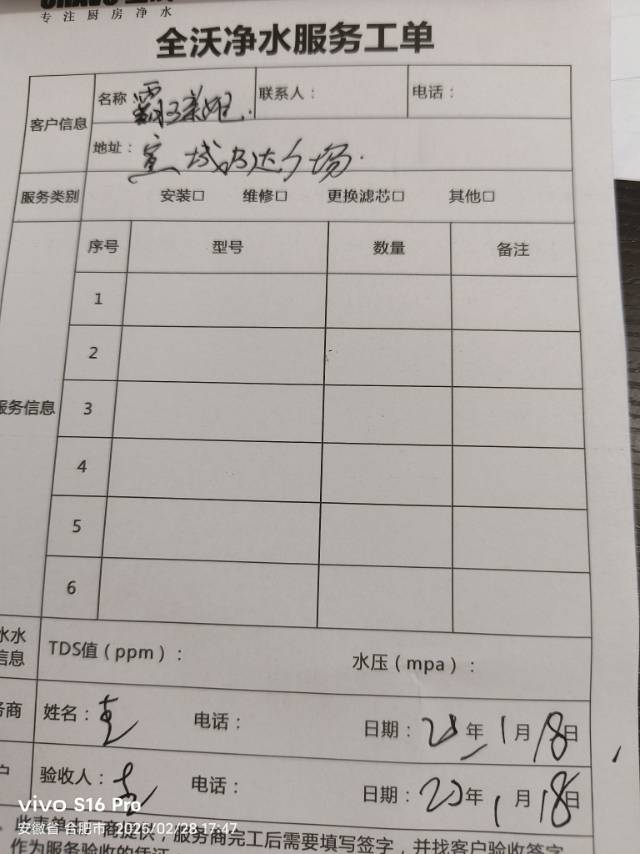 专注厨房净水
全沃净水服务工单
客户信息
名称 霸王茶姬.
联系人：
电话：
地址：宣城万达广场.
服务类别
安装□ 维修□ 更换滤芯□ 其他□
服务信息
序号 型号 数量 备注
1
2
3
4
5
6
水水
信息
TDS值（ppm）： 水压（mpa）：
务商
姓名： 电话： 日期： 年 1月18日
户
验收人： 电话： 日期： 年 1月18日
vivo S16 Pro
安徽省 合肥市 2025/02/28 17:47
商提供，服务商完工后需要填写签字，并找客户验收签字
作为服务验收的凭证